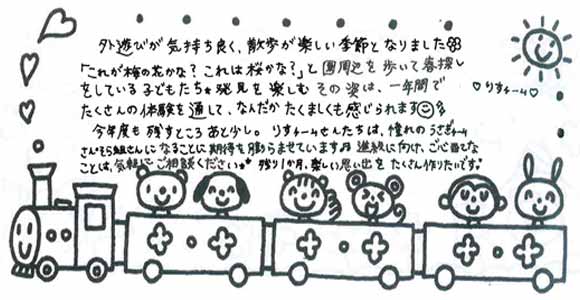 外遊びが気持ち良く、散歩が楽しい季節となりました
「これが梅の花かな？これは桜かな？」と園周辺を歩いて春探し
をしている子どもたち★発見を楽しむその姿は、一年間で
たくさんの体験を通して、なんだかたくましくも感じられます
今年度も残すところあと少し。りすチームさんたちは、憧れのうさぎチーム
さん・そら組さんになることに期待を膨らませています♬進級に向け、ご心配な
ことは、気軽にご相談ください★残り1か月、楽しい思い出をたくさん作りたいです。
♡りすチーム♡